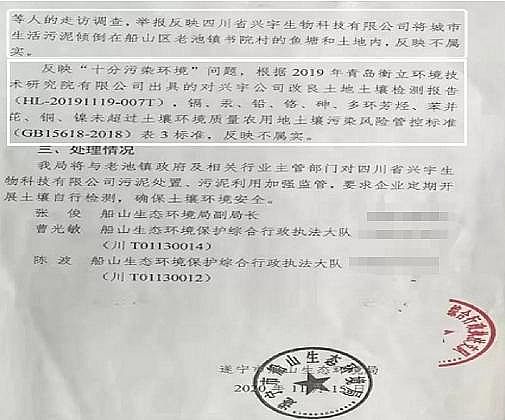 等人的走访调查，举报反映四川省兴宇生物科技有限公司将城市
生活污泥倾倒在船山区老池镇书院村的鱼塘和土地内，反映不属
实。
反映“十分污染环境”问题，根据2019年青岛衡立环境技
术研究院有限公司出具的对兴宇公司改良土地土壤检测报告
（HL-20191119-007T），镉、汞、铅、铬、砷、多环芳烃、苯并
芘、铜、镍未超过土壤环境质量农用地土壤污染风险管控标准
（GB15618-2018）表3标准，反映不属实。
三、处理情况
我局将与老池镇政府及相关行业主管部门对四川省兴宇生
物科技有限公司污泥处置、污泥利用加强监管，要求企业定期开
展土壤自行检测，确保土壤环境安全。
张 俊 船山生态环境局副局长
曹光敏 船山生态环境保护综合行政执法大队
（川T01130014）
陈 波 船山生态环境保护综合行政执法大队
（川T01130012）
综合行政执法
遂宁市船山生态环境局
2020年11月15日
遂宁市船山生态环境局